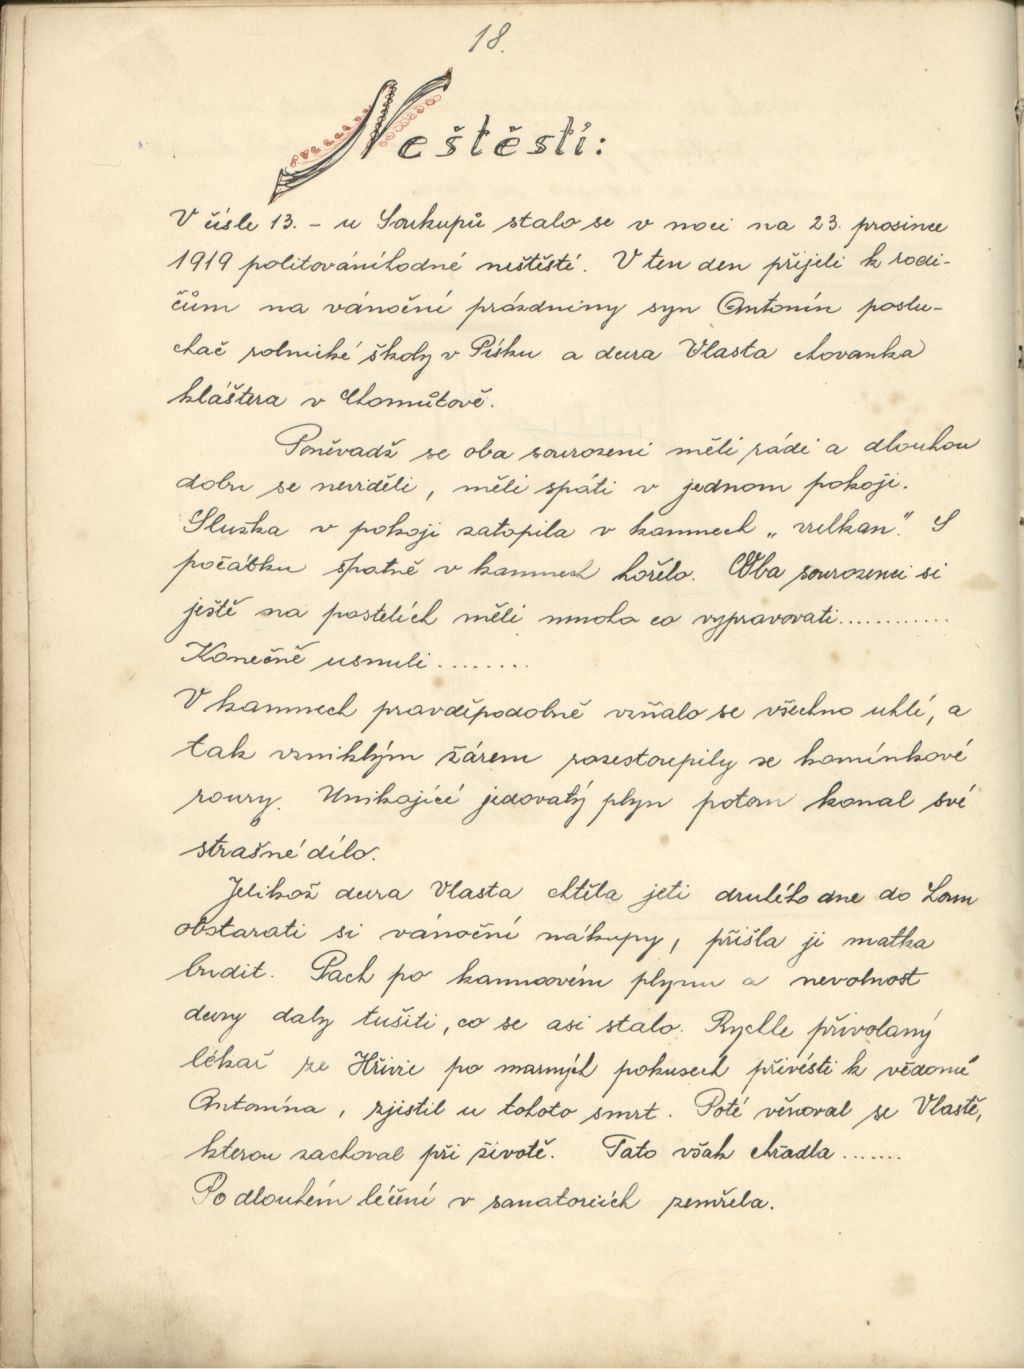 18.
Neštěstí:
V čísle 13. - u Soukupů stalo se v noci na 23. prosince
1919 politováníhodné neštěstí. V ten den přijeli k rodi-
čům na vánoční prázdniny syn Antonín poslu-
chač rolnické školy v Písku a dcera Vlasta chovanka
kláštera v Chomůtově.
Poněvadž se oba sourozeni měli rádi a dlouhou
dobu se neviděli, měli späti v jednom pokoji.
Služka v pokoji zatopila v kamnech „vulkan". S
počátku špatně v kamnech hořelo. Oba sourozenci si
ještě na postelích měli mnoho co vypravovati............
Konečně usnuli........
V kamnech pravděpodobně vzňalo se všechno uhlí, a
tak vzniklým žárem rozestoupily se komínkové
roury. Unikající jedovatý plyn potom konal své
strašné dílo.
Jelikož dcera Vlasta chtěla jeti druhého dne do Loun
obstarati si vánoční nákupy, přišla ji matka
budit. Pach po kamnovém plynu a nevolnost
dcery daly tušiti, co se asi stalo. Rychle přivolaný
lékař ze Hřivic po marných pokusech přivésti k vědomí
Antonína, zjistil u tohoto smrt. Poté věnoval se Vlastě,
kterou zachoval při životě. Tato však chřadla.......
Po dlouhém léčení v sanatoriích zemřela.